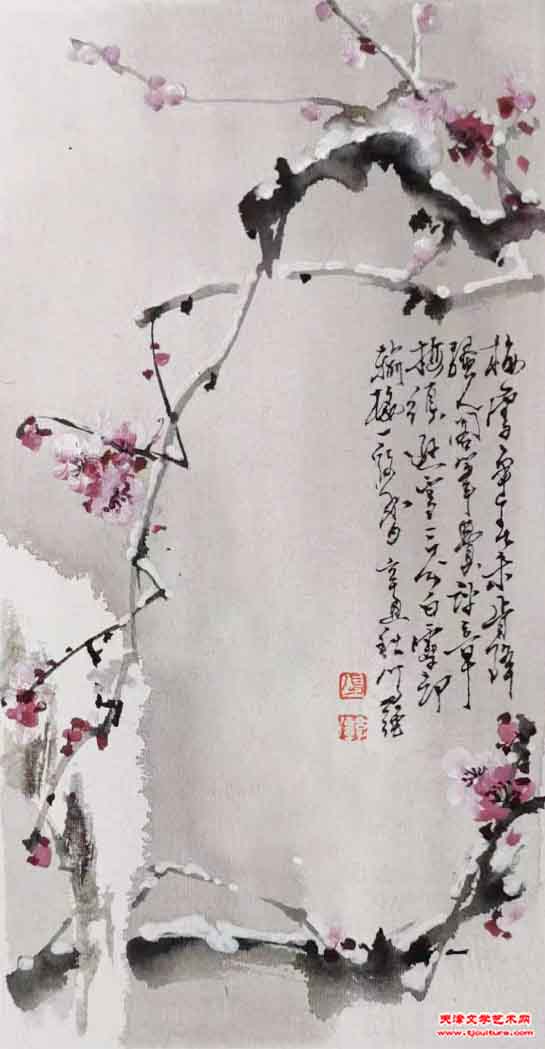 梅雪争春未肯降
骚人阁笔费评章
梅须逊雪三分白雪却
输梅一段香 辛丑
天津文学艺术网
www.tjculture.com